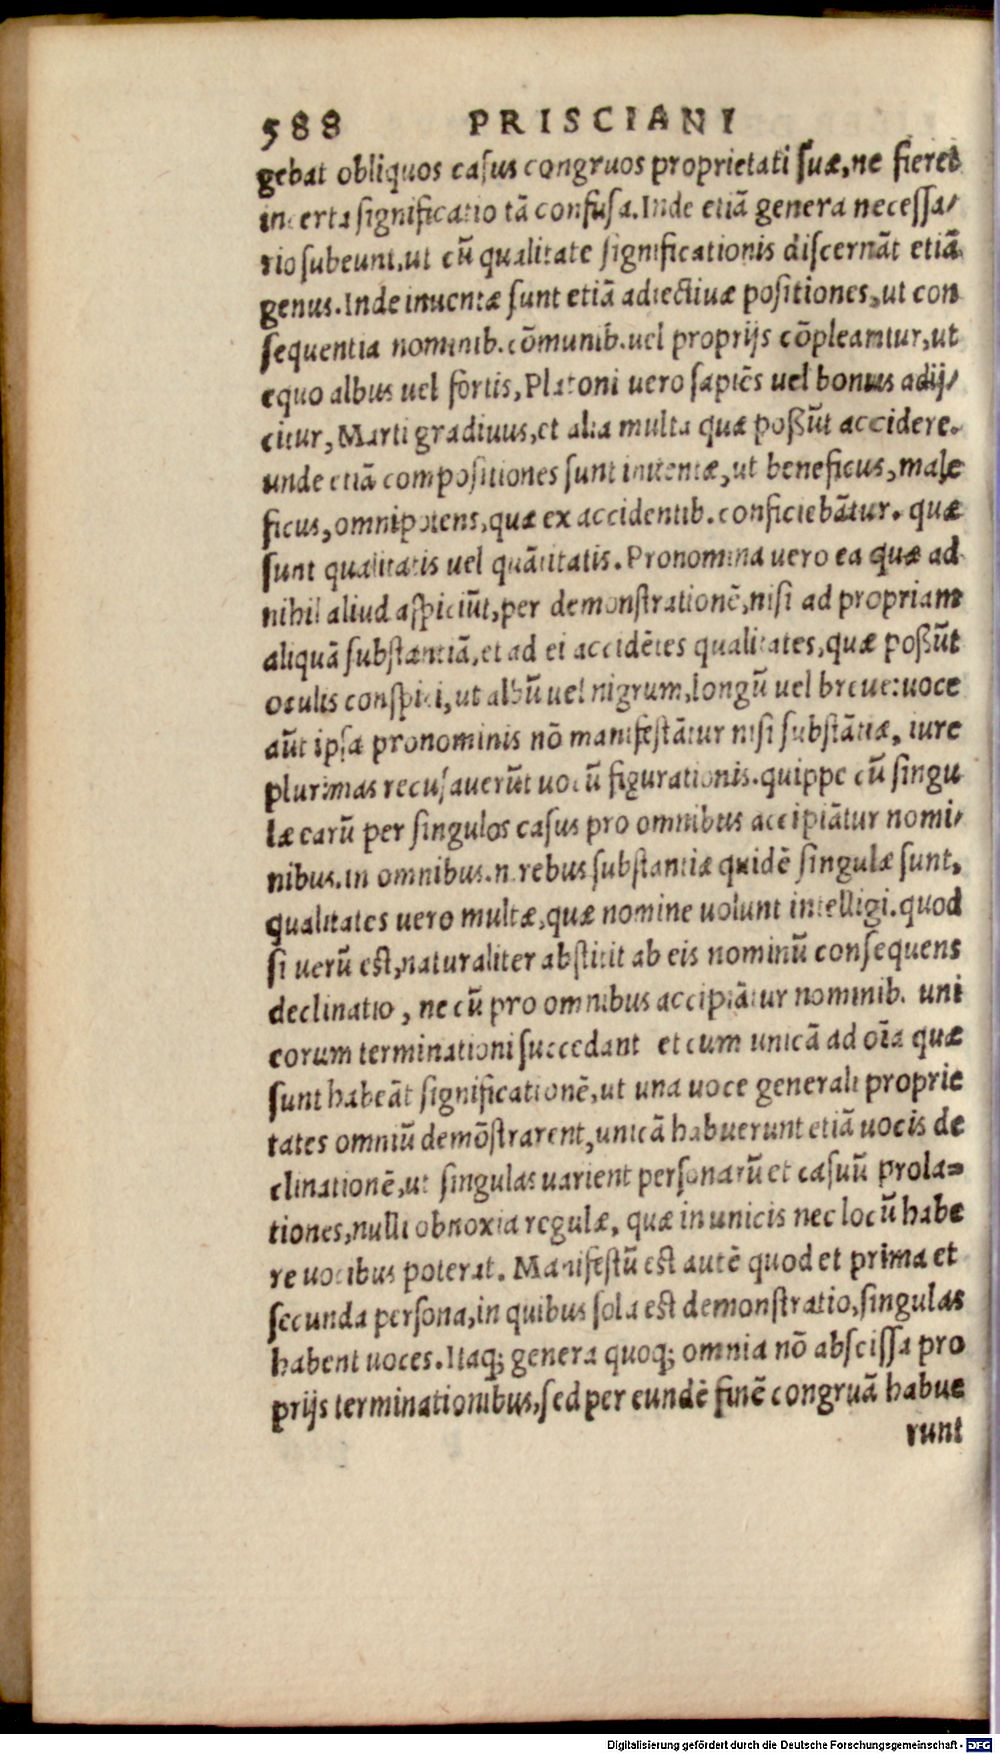 588 PRISCIANI
gebat obliquos casus congruos proprietati suæ,ne fieret
incerta significatio tã confusa.Inde etiã genera necessa/
rio subeunt,ut cũ qualitate significationis discernãt etiã
genus.Inde inuentæ sunt etiã adiectiuæ positiones,ut con
sequentia nominib.cõmunib.uel proprijs cõpleantur,ut
equo albus uel fortis,Platoni uero sapiẽs uel bonus adij/
citur,Marti gradiuus,et alia multa quæ poßũt accidere.
unde etiã compositiones sunt inuentæ,ut beneficus,male
ficus,omnipotens,quæ ex accidentib.conficiebãtur. quæ
sunt qualitatis uel quãtitatis.Pronomina uero ea quæ ad
nihil aliud aspiciũt,per demonstrationẽ,nisi ad propriam
aliquã substantiã,et ad ei accidẽtes qualitates,quæ poßũt
oculis conspici,ut albũ uel nigrum,longũ uel breue:uoce
aũt ipsa pronominis nõ manifestãtur nisi substãtiæ, iure
plurimas recusauerũt uocũ figurationis.quippe cũ singu
læ earũ per singulos casus pro omnibus accipiãtur nomi/
nibus.in omnibus.n.rebus substantiæ quidẽ singulæ sunt,
qualitates uero multæ,quæ nomine uolunt intelligi.quod
si uerũ est,naturaliter abstitit ab eis nominũ consequens
declinatio, ne cũ pro omnibus accipiãtur nominib. uni
eorum terminationi succedant et cum unicã ad oĩa quæ
sunt habeãt significationẽ,ut una uoce generali proprie
tates omniũ demõstrarent,unicã habuerunt etiã uocis de
clinationẽ,ut singulas uarient personarũ et casuũ prola=
tiones,nulli obnoxia regulæ, quæ in unicis nec locũ habe
re uocibus poterat. Manifestũ est autẽ quod et prima et
secunda persona,in quibus sola est demonstratio,singulas
habent uoces.Itaq; genera quoq; omnia nõ abscissa pro
prijs terminationibus,sed per eundẽ finẽ congruã habue
runt
Digitalisierung gefördert durch die Deutsche Forschungsgemeinschaft - DFG